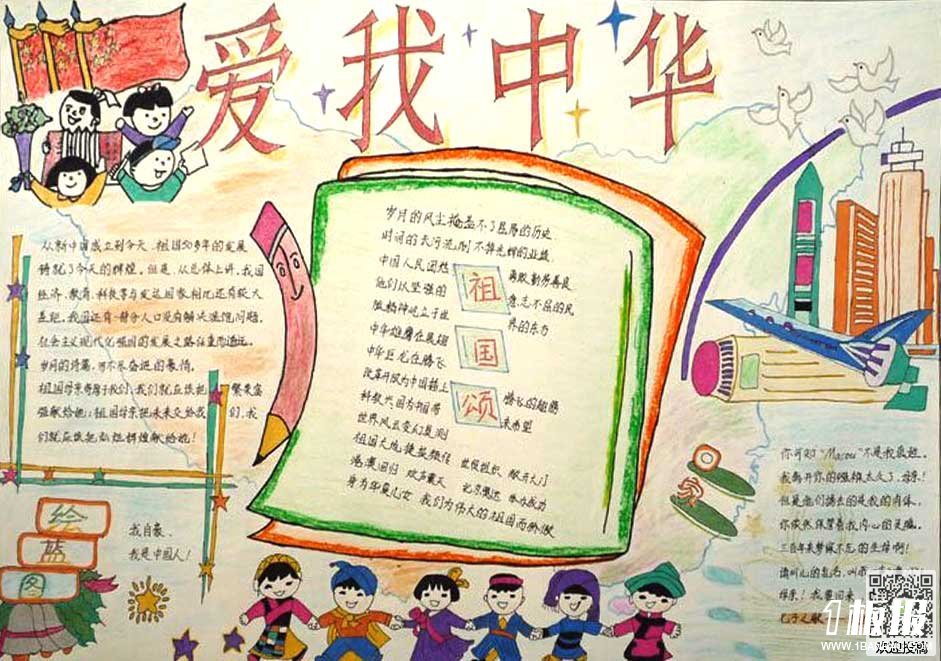 爱我中华
从新中国成立到今天,祖国50多年的发展
铸就了今天的辉煌。但是,从总体上讲,我国
经济、教育、科技等与发达国家相比还有较大
差距。我国还有一部分人口没有解决温饱问题。
社会主义现代化强国的发展之路任重而道远。
岁月的诗篇,写不尽奋进的豪情。
祖国母亲哺育了我们,我们就应该把繁荣富
强献给她;祖国母亲把未来交给我们,我
们就应该把灿烂辉煌献给她!
绘
蓝
图
我自豪、
我是中国人!
岁月的风尘掩盖不了屈辱的历史
时间的长河流刷不掉光辉的业绩
中国人民团结 勇敢勤劳善良
他们以坚强的 意志不屈的民
族精神屹立于世 界的东方
中华雄鹰在展翅
中华巨龙在腾飞
改革开放为中国插上 腾飞的翅膀
科教兴国为中国带 来希望
世界风云变幻莫测
祖国大地捷英频传 世贸组织 敞开大门
港澳回归 欢声震天 北京奥运 举办成功
身为华夏儿女 我们为伟大的祖国而骄傲
祖
国
颂
回
家
你可知"Macau"不是我真姓。
我离开你的襁褓太久了,母亲!
但是他们掳去的是我的肉体,
你依然保管着我内心的灵魂。
三百年来梦寐不忘的生母啊!
请叫儿的乳名,叫我一声
母亲!我要回来
1板报
WWW.1BANBAO.COM
欢迎投稿